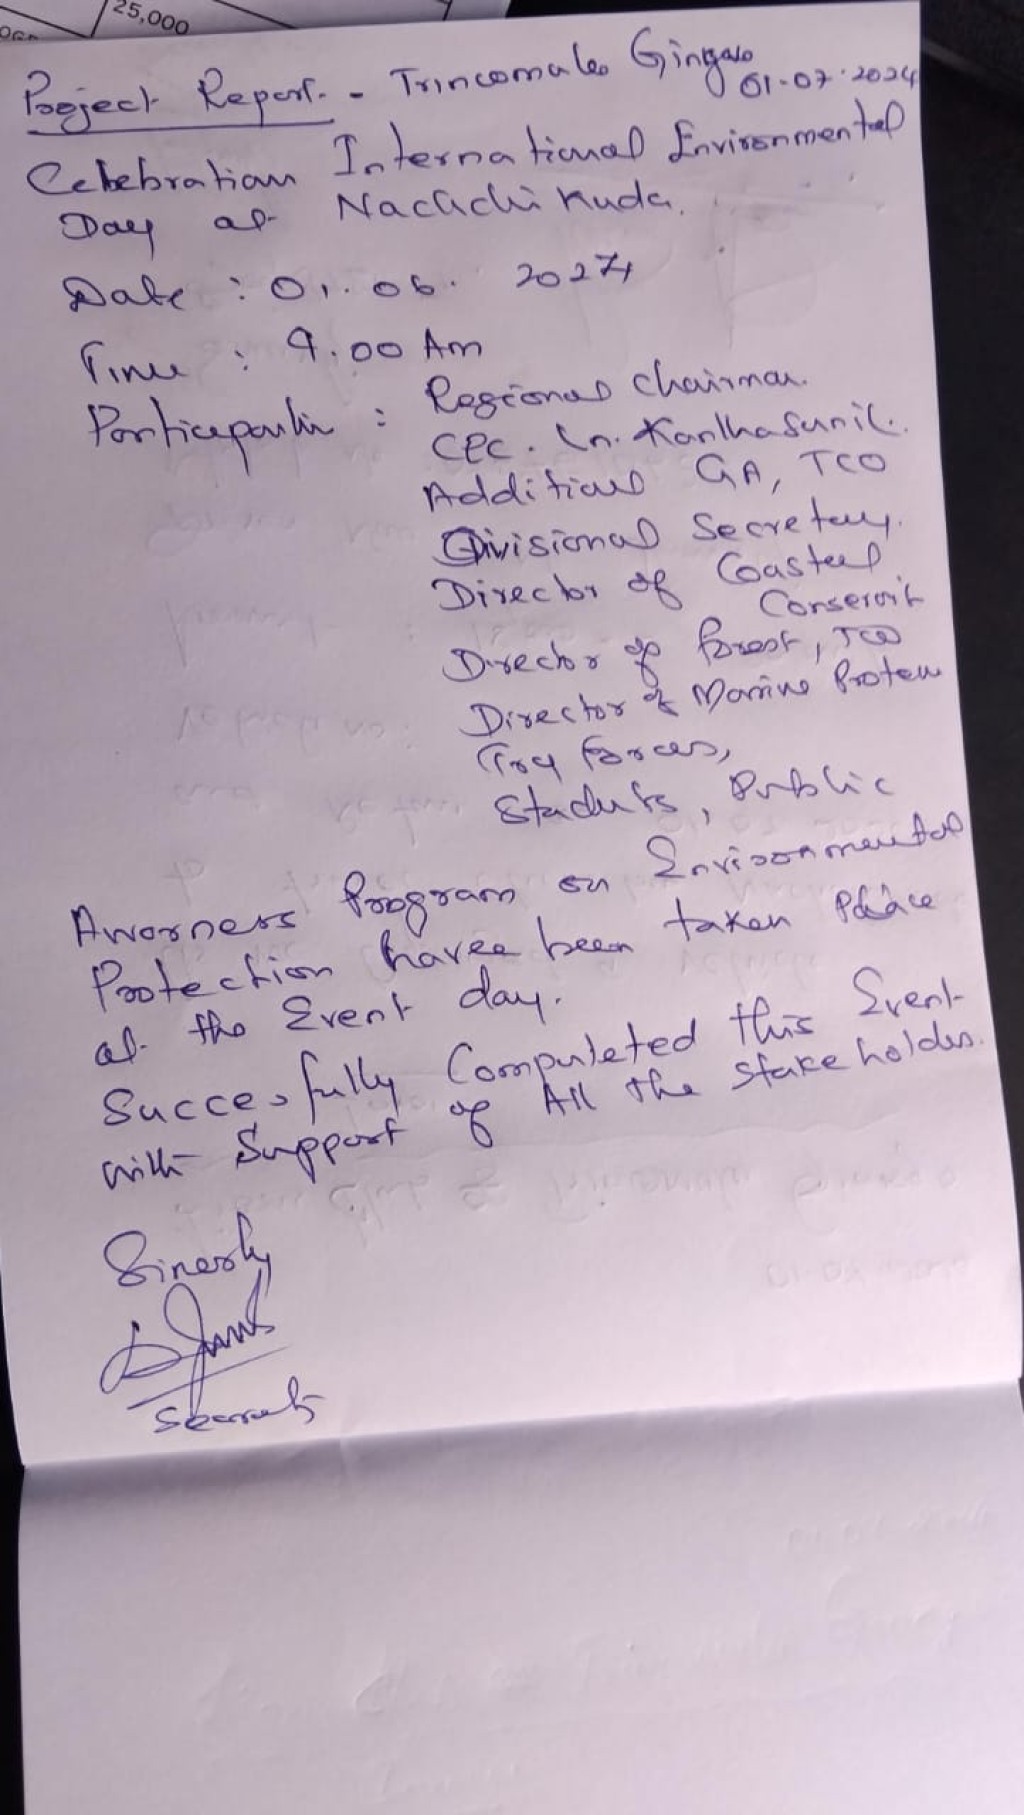 25,000
Project Report - Trincomalee Gingee
01-07-2024
Celebration International Environmental
Day at Nachchikuda.
Date : 01.06. 2024
Time : 9.00 Am
Participantin : Regional Chairman.
CPC. Ln. Kanthasunil.
Additional GA, TCO
Divisional Secretary.
Director of Coastal
Conservit
Director of forest, TCO
Director of Marine Protew
Try forces,
Students, Public
Aworness Program on Environmental
Protection havee been taken place
at the Event day.
Succesfully Compuleted this Event
with Support of All the stake holders.
Sinerly
Secrety